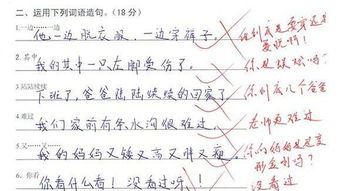 二、运用下列词语造句。（18分）
1.一边……一边
他一边脱衣服，一边穿裤子。
他到底是要穿还是要脱啊！
2.其中
我的其中一只左脚受伤了。
你是蜈蚣吗？
3.陆陆续续
下班了，爸爸陆陆续续的回家了
你到底有几个爸爸
4.难过
我们家前有条水沟很难过。
老师更难过
5.又……又
我的妈妈又矮又高又胖又瘦。
你的妈妈是变形金刚吗？
6.你看
你看什么看！没看过呀！
没看过